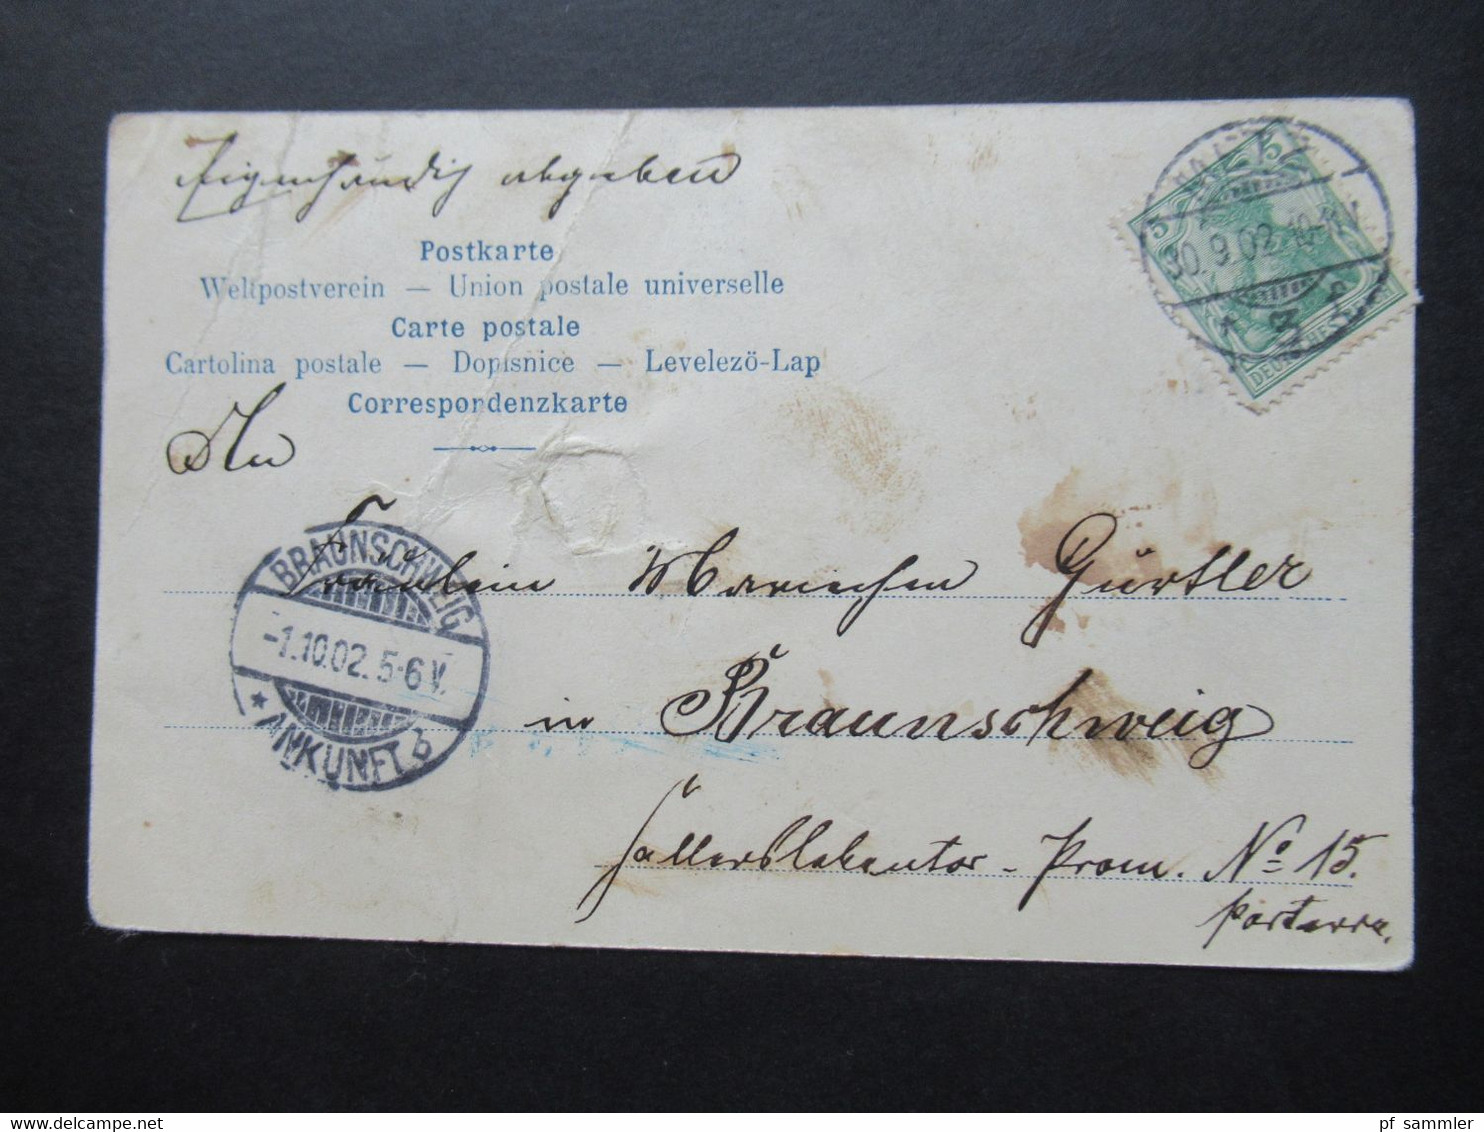 Eigenhändig abgeben
Postkarte
Weltpostverein — Union postale universelle
Carte postale
Cartolina postale — Dopisnice — Levelezö-Lap
Correspondenzkarte
5 5
30.9.02. 10-11V
An
Fräulein Mariechen Gürtler
BRAUNSCHWEIG
-1.10.02. 5-6 V.
* ANKUNFT. b
in Braunschweig
Fallerslebentor-Prom. No 15.
Parterre.
pf_sammler
www.delcampe.net